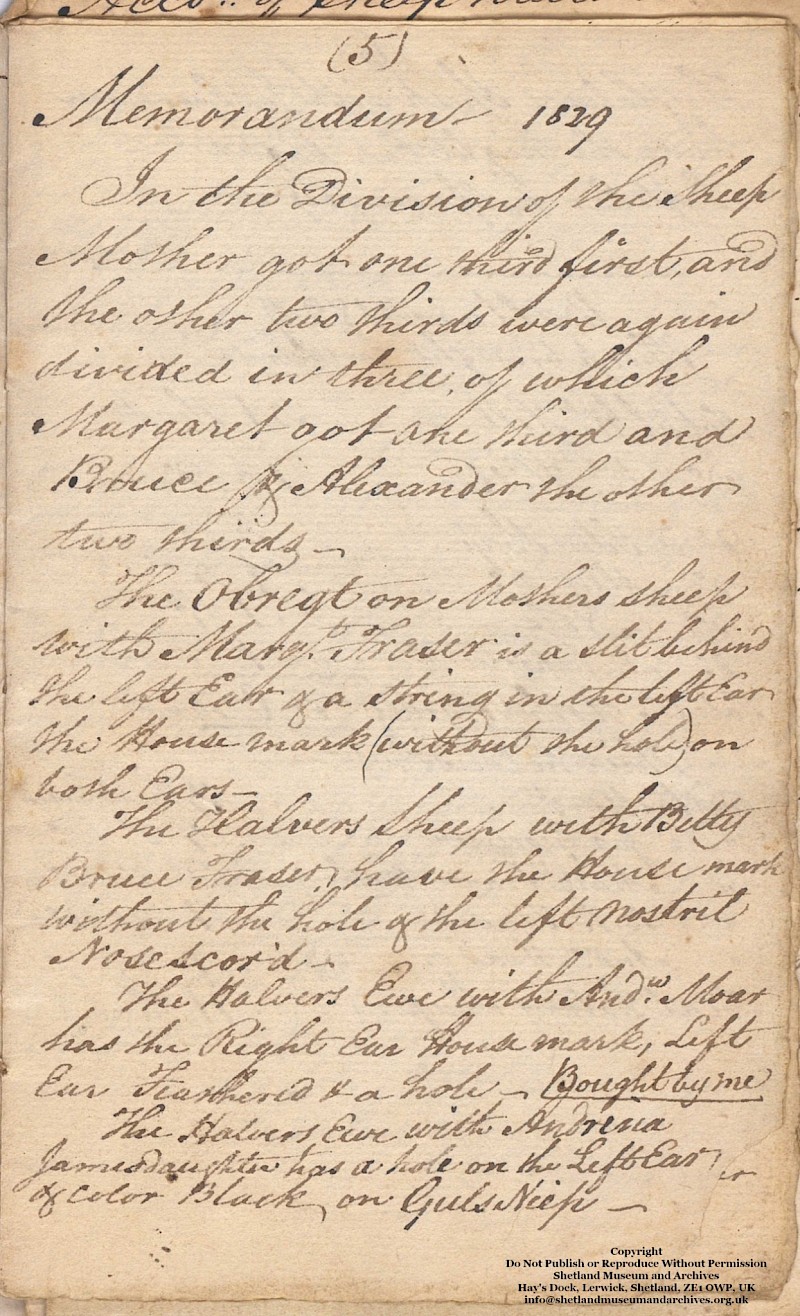 (5)
Memorandum 1829
In the Division of the Sheep
Mother got one third first, and
the other two thirds were again
divided in three, of which
Margaret got one third and
Bruce & Alexander the other
two thirds —
The Obregt on Mothers sheep
with Margt. Fraser is a slit behind
the left Ear & a string in the left Ear
the House mark (without the hole) on
both Ears —
The Halvers Sheep with Betty
Bruce Fraser, have the House mark
without the hole & the left nostril
Nose scor'd —
The Halvers Ewe with Andw. Moar
has the Right Ear House mark, Left
Ear Feathered & a hole — Bought by me
The Halvers Ewe with Andrina
Jamesdaughter has a hole on the Left Ear,
& color Black, on Guls Niep —
Copyright
Do Not Publish or Reproduce Without Permission
Shetland Museum and Archives
Hay's Dock, Lerwick, Shetland, ZE1 0WP, UK
info@shetlandmuseumandarchives.org.uk